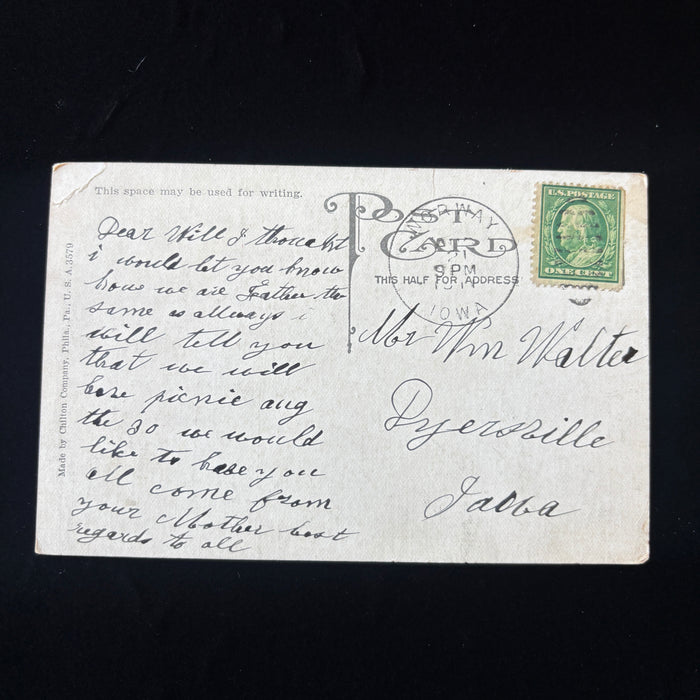 This space may be used for writing.
POST CARD
THIS HALF FOR ADDRESS
NORWAY
21
9 PM
IOWA
U.S. POSTAGE
ONE CENT
Made by Chilton Company, Phila., Pa., U. S. A. 3579
Dear Will I thought
i would let you know
how we are Father the
same as allways i
will tell you
that we will
have picnic aug
the 30 we would
like to have you
all come from
your Mother best
regards to all
Mr Wm Walter
Dyersville
Iowa